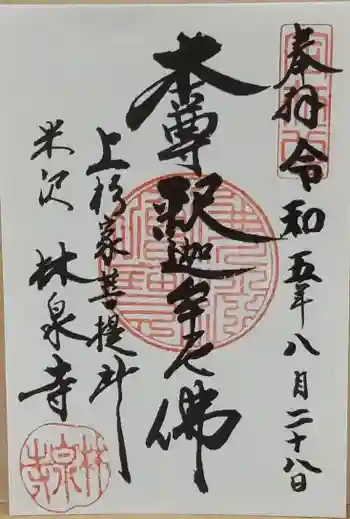 奉拝 令和五年八月二十八日
本尊 釈迦牟尼佛
上杉家菩提所
米沢 林泉寺
林泉寺